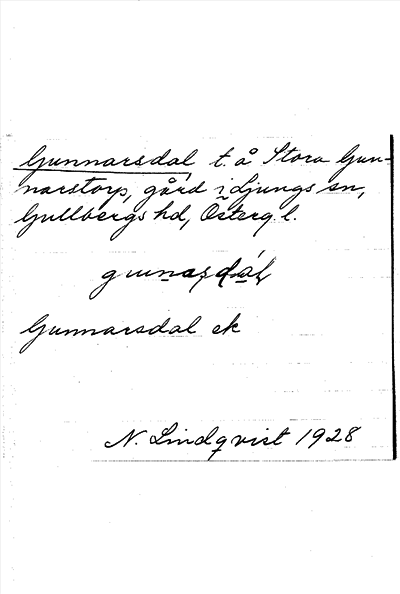 Gunnarsdal t. å Stora Gun-
narstorp, gård i Ljungs sn,
Gullbergs hd, Österg. l.
Gunnarsdal ek
N. Lindqvist 1928